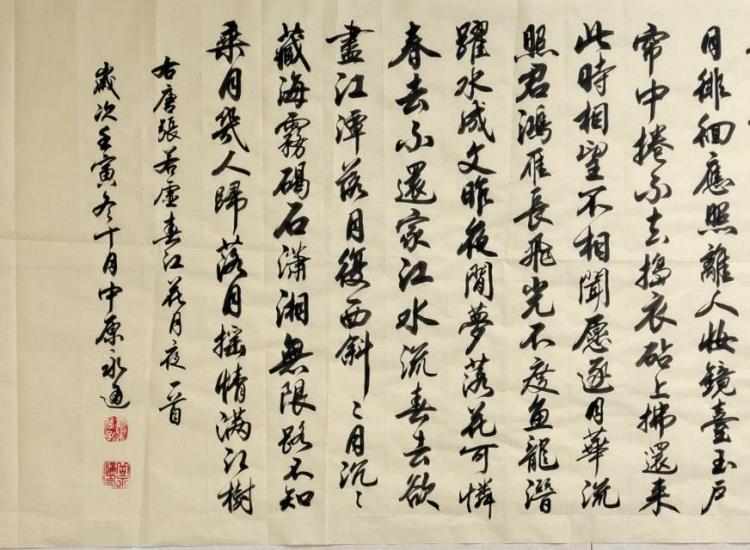 月徘徊應照離人妝鏡臺玉戶
帘中捲不去搗衣砧上拂還来
此時相望不相聞愿逐月華流
照君鴻雁長飛光不度魚龍潛
躍水成文昨夜閒夢落花可憐
春去不還家江水流春去欲
盡江潭落月復西斜〻月沉〻
藏海霧碣石瀟湘無限路不知
乘月幾人歸落月摇情满江樹
右唐張若虛春江花月夜一首
歲次壬寅冬十月中原永通